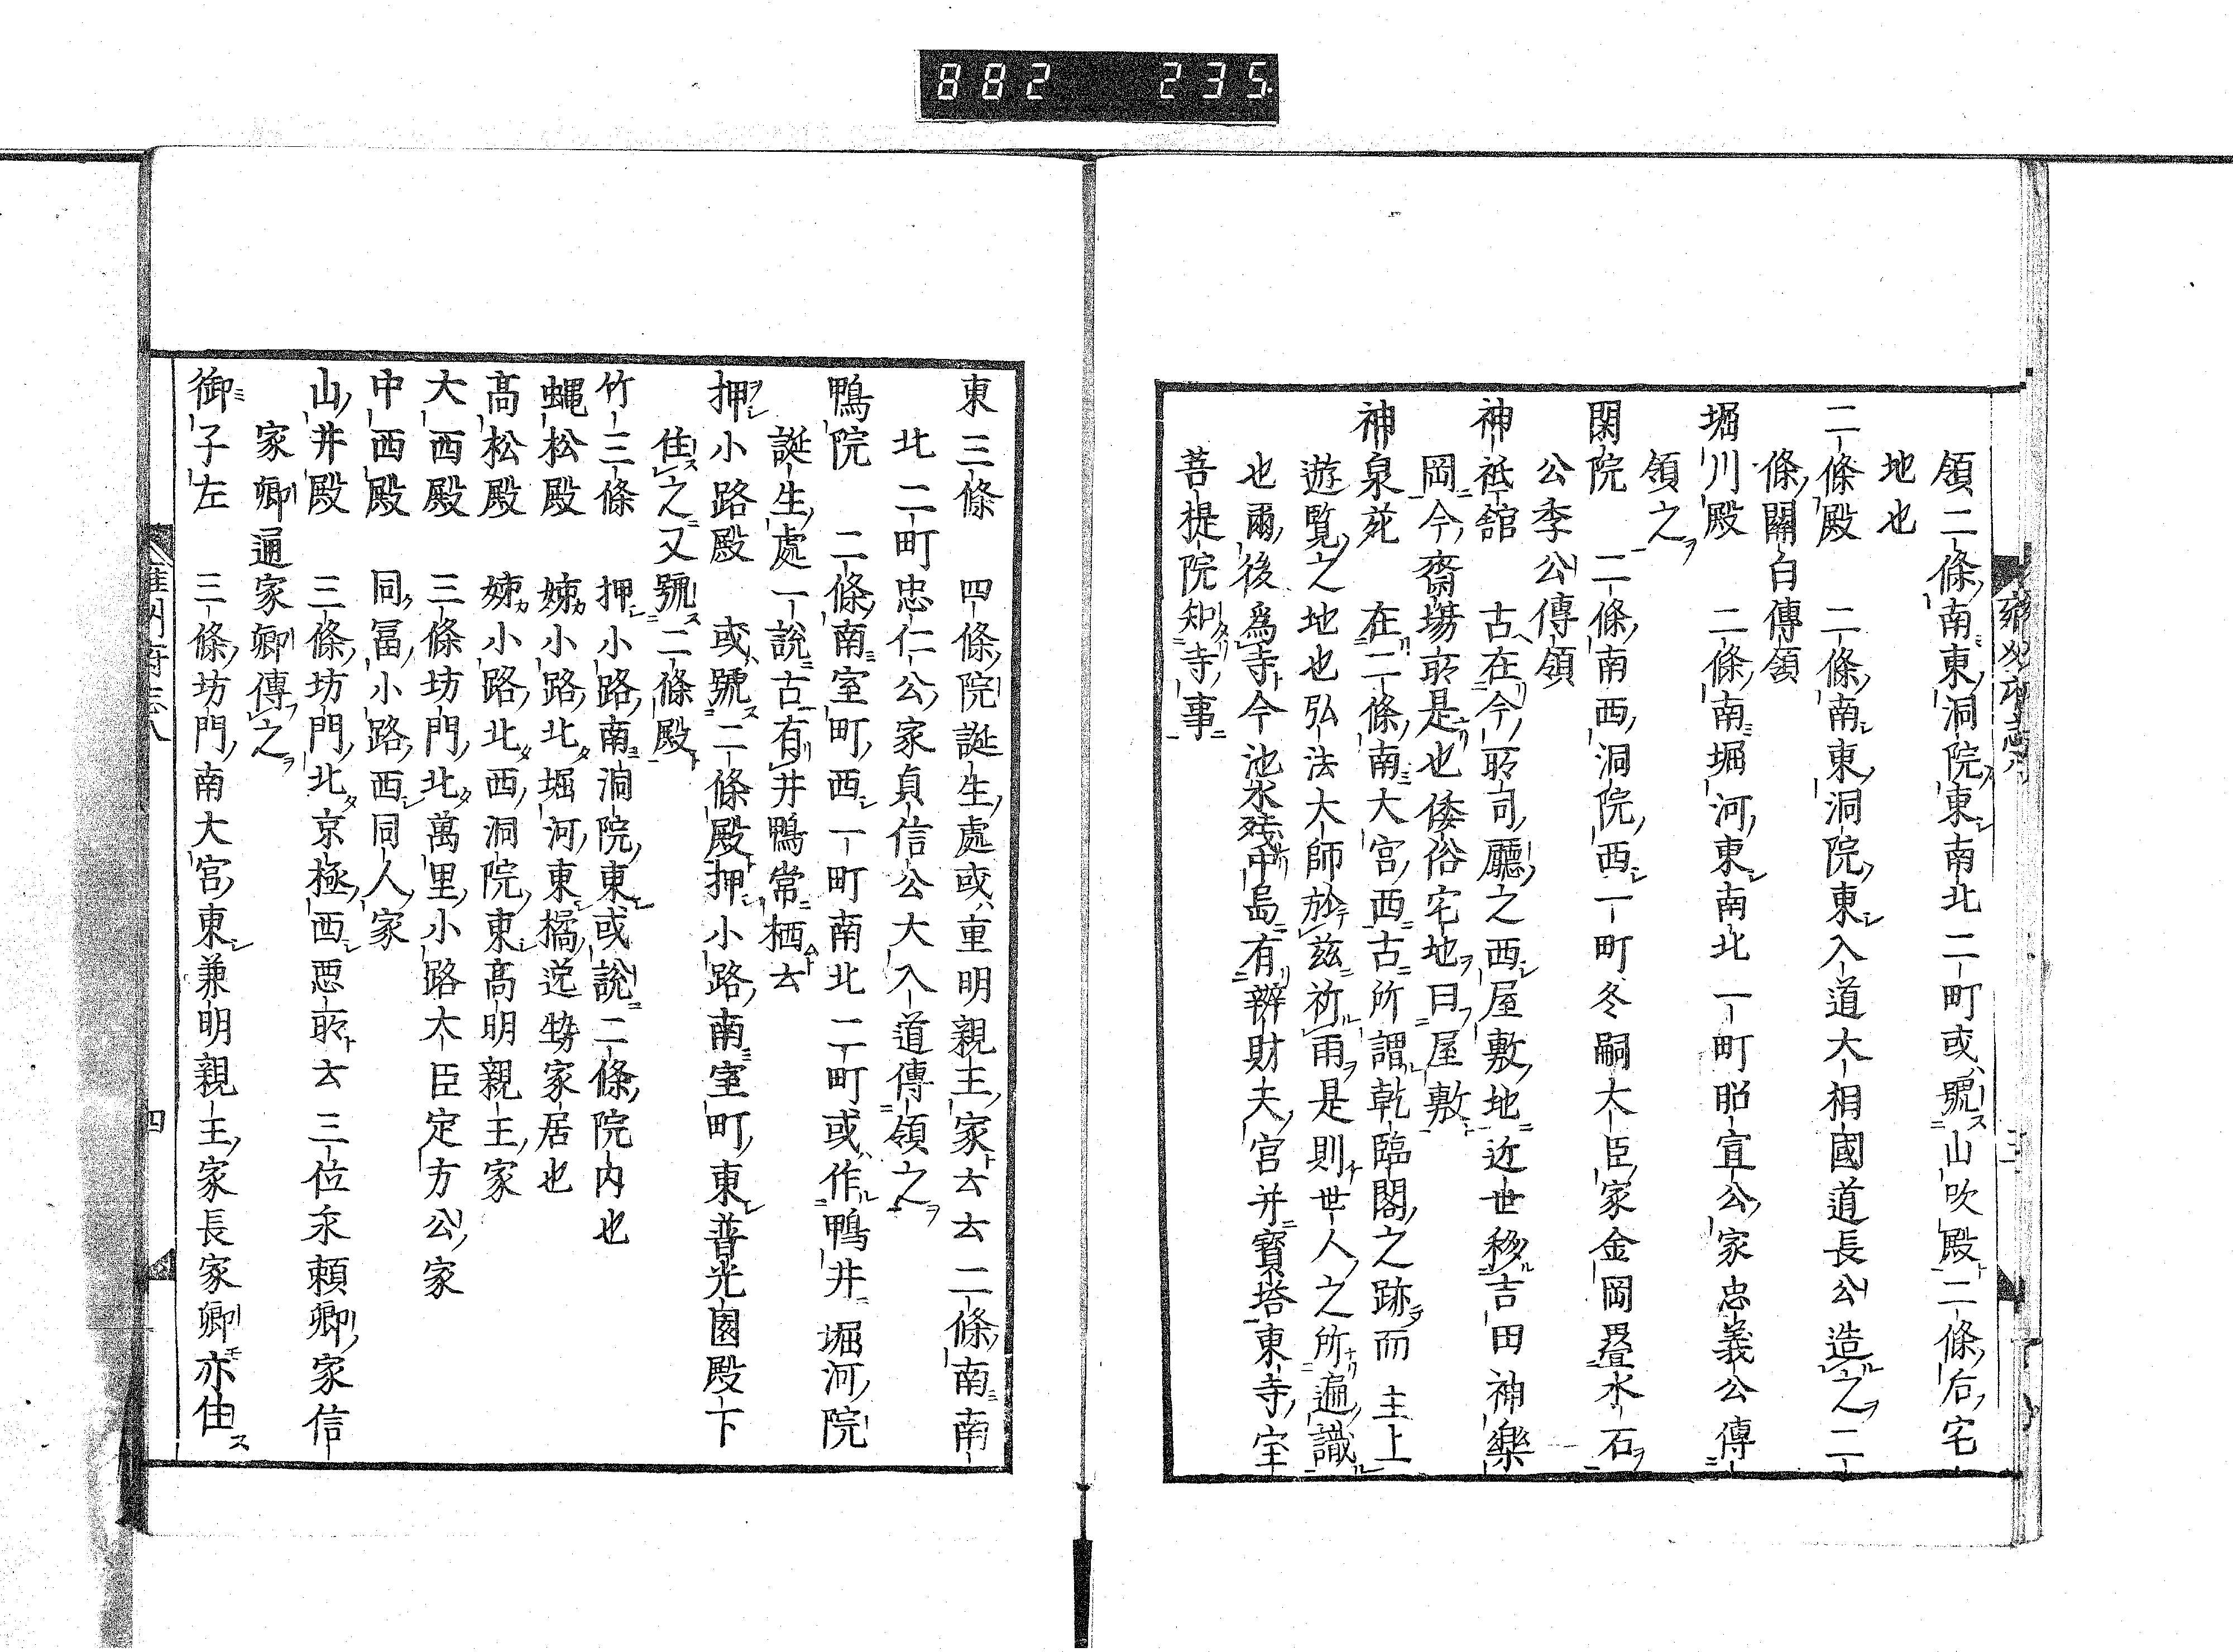 882 235
領二條南東洞院東南北二町或號山吹殿二條后宅
地也
二條殿 二條南東洞院東入道大相國道長公造之二
條關白傳領
堀川殿 二條南堀河東南北一町昭宣公家忠義公傳
領之
閑院 二條南西洞院西一町冬嗣大臣家金岡疊水石
公季公傳領
神祗舘 古在今所司廳之西屋敷地近世移吉田神樂
岡今齋場所是也倭俗宅地曰屋敷
神泉苑 在二條南大宮西古所謂乾臨閣之跡而主上
遊覧之地也弘法大師於茲祈雨是則世人之所遍識
也爾後爲寺今池水殘中島有辨財天宮并寳塔東寺宝
菩提院知寺事
東三條 四條院誕生處或重明親王家云云二條南南
北二町忠仁公家貞信公大入道傳領之
鴨院 二條南室町西一町南北二町或作鴨井堀河院
誕生處一說古有井鴨常栖云
押小路殿 或號二條殿押小路南室町東普光園殿下
住之又號二條殿
竹三條 押小路南洞院東或說二條院内也
蠅松殿 姊小路北堀河東橘逆勢家居也
髙松殿 姊小路北西洞院東髙明親王家
大西殿 三條坊門北萬里小路大臣定方公家
中西殿 同冨小路西同人家
山井殿 三條坊門北京極西悪所云三位永頼卿家信
家卿通家卿傳之
御子左 三條坊門南大宮東兼明親王家長家卿亦住
雍州府志八
四